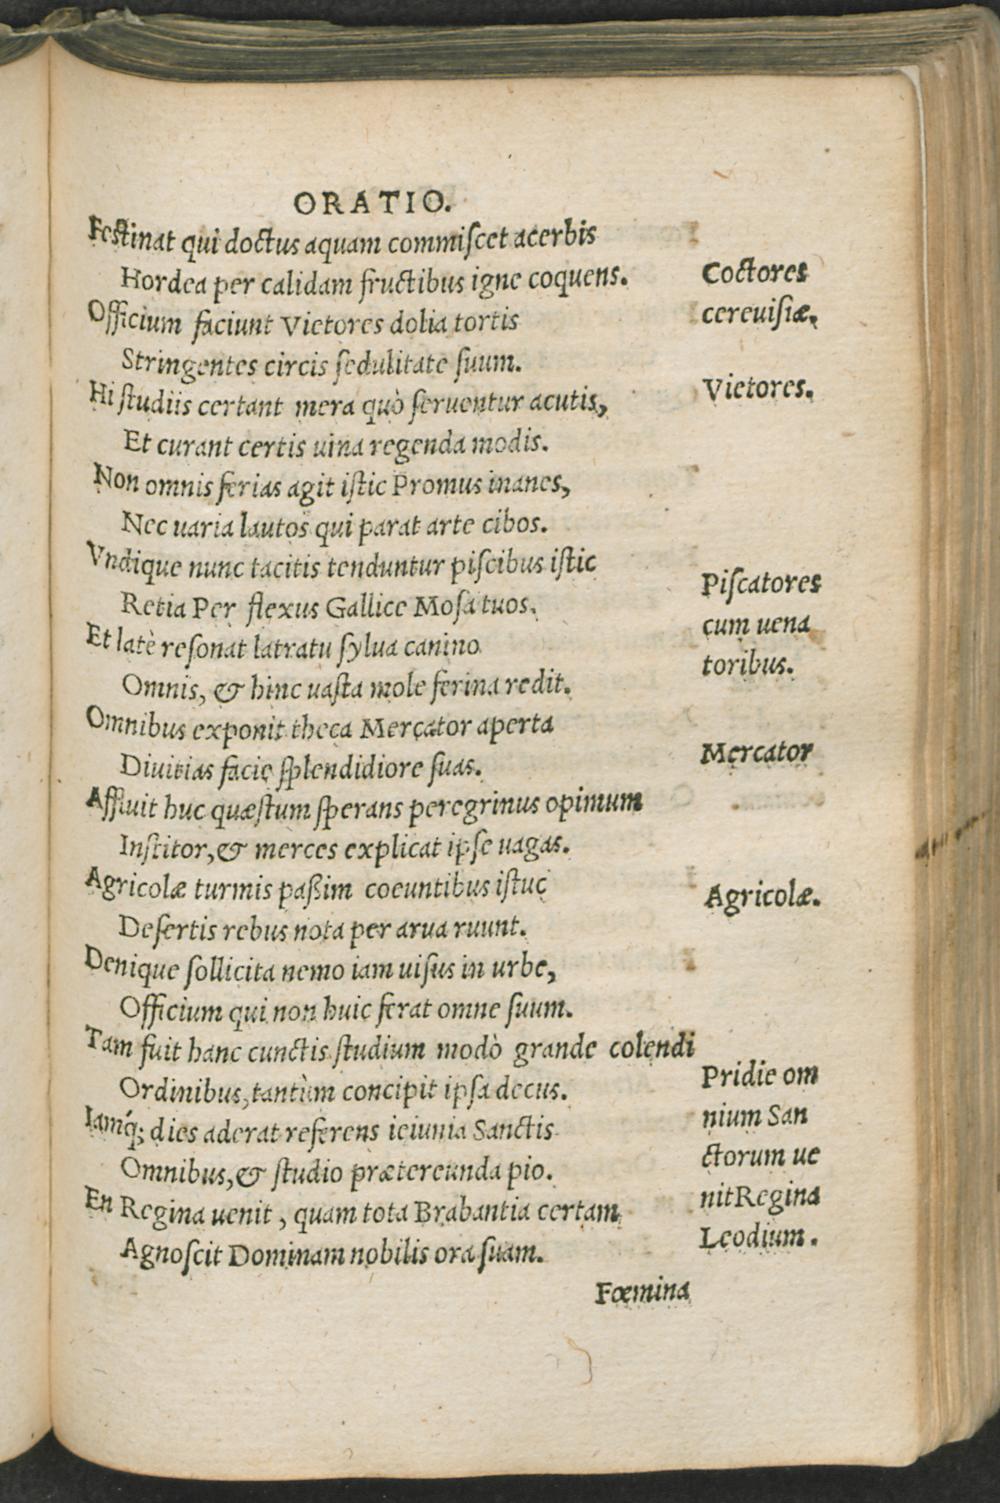 ORATIO.
Festinat qui doctus aquam commiſcet acerbis
Hordea per calidam fructibus igne coquens.
Coctores
Officium faciunt Vietores dolia tortis
cereuiſiæ.
Stringentes circis ſedulitate ſuum.
Vietores.
Hi ſtudiis certant mera quò ſeruentur acutis,
Et curant certis uina regenda modis.
Non omnis ferias agit iſtic Promus inanes,
Nec uaria lautos qui parat arte cibos.
Vndique nunc tacitis tenduntur piſcibus iſtic
Piſcatores
Retia Per flexus Gallice Moſa tuos.
cum uena
Et latè reſonat latratu ſylua canino
toribus.
Omnis, & hinc uaſta mole ferina redit.
Omnibus exponit theca Mercator aperta
Mercator
Diuitias facie ſplendidiore ſuas.
Affluit huc quæſtum ſperans peregrinus opimum
Inſtitor, & merces explicat ipſe uagas.
Agricolæ turmis paßim coeuntibus iſtuc
Agricolæ.
Deſertis rebus nota per arua ruunt.
Denique ſollicita nemo iam uiſus in urbe,
Officium qui non huic ferat omne ſuum.
Tam fuit hanc cunctis ſtudium modò grande colendi
Pridie om
Ordinibus, tantùm concipit ipſa decus.
nium San
Iamq́; dies aderat referens ieiunia Sanctis
ctorum ue
Omnibus, & ſtudio prætereunda pio.
nitRegina
En Regina uenit, quam tota Brabantia certam
Leodium.
Agnoſcit Dominam nobilis ora ſuam.
Fœmina